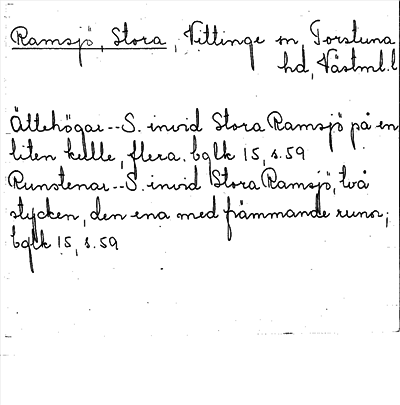 Ramsjö, Stora, Vittinge sn, Torstuna
hd, Västml. l
Ättehögar--S. invid Stora Ramsjö på en
liten kulle, flera. bglk 15, s. 59
Runstenar--S. invid Stora Ramsjö, två
stycken, den ena med främmande runor;
bglk 15, s. 59